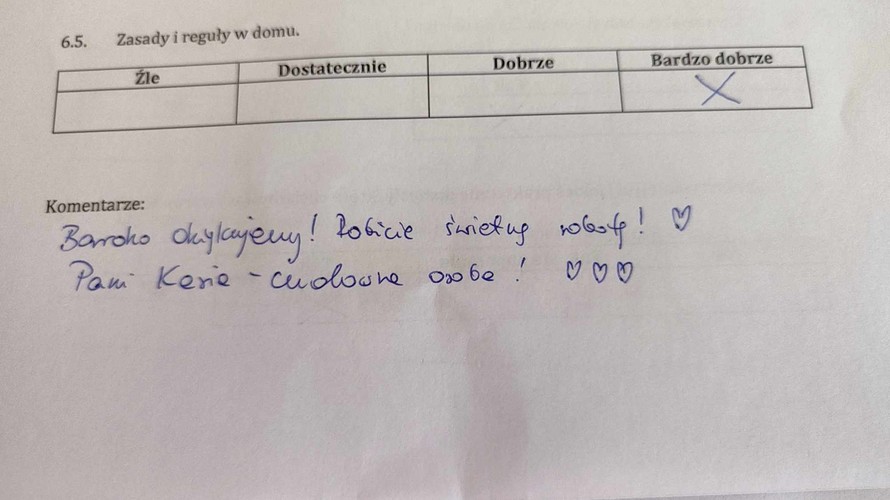 6.5. Zasady i reguły w domu.
Źle Dostatecznie Dobrze Bardzo dobrze
X
Komentarze:
Bardzo dziękujemy! Robicie świetną robotę! ♡
Pani Kasia - cudowna osoba! ♡♡♡